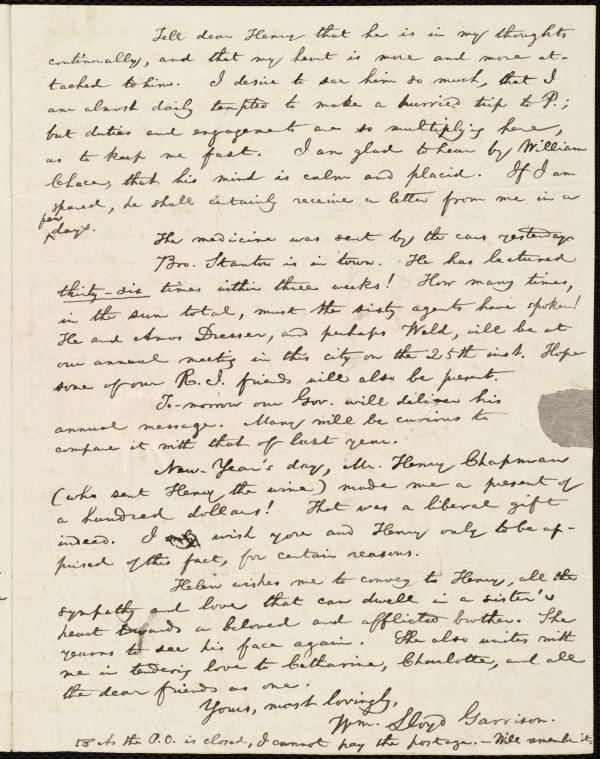 Tell dear Henry that he is in my thoughts
continually, and that my heart is more and more at-
tached to him. I desire to see him so much, that I
am almost daily tempted to make a hurried trip to P.;
but duties and engagements are so multiplying here,
as to keep me fast. I am glad to hear by William
Chace, that his mind is calm and placid. If I am
spared, he shall certainly receive a letter from me in a
few
^days.
The medicine was sent by the cars yesterday.
Bro. Stanton is in town. He has lectured
thirty-six times within three weeks! How many times,
in the sum total, must the sixty agents have spoken!
He and Amos Dresser, and perhaps Weld, will be at
our annual meeting in this city on the 25th inst. Hope
some of our R. I. friends will also be present.
To-morrow our Gov. will deliver his
annual message. Many will be curious to
compare it with that of last year.
New-Year's day, Mr. Henry Chapman
(who sent Henry the wine) made me a present of
a hundred dollars! That was a liberal gift
indeed. I wish you and Henry only to be ap-
prised of this fact, for certain reasons.
Helen wishes me to convey to Henry, all the
sympathy and love that can dwell in a sister's
heart towards a beloved and afflicted brother. She
yearns to see his face again. She also unites with
me in tendering love to Catharine, Charlotte, and all
the dear friends as one.
Yours, most lovingly,
Wm. Lloyd Garrison.
☞ As the P.O. is closed, I cannot pay the postage. – Will remember it.